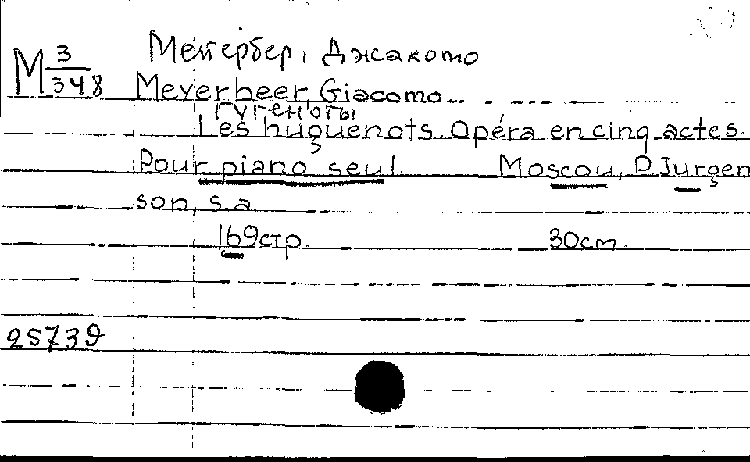 М 3/348
Мейербер, Джакомо
Meyerbeer, Giacomo
Гугеноты
Les huguenots. Opéra en cinq actes.
Pour piano seul Moscou, P. Jurgen
son, s.a
169 стр. 30 см.
25739